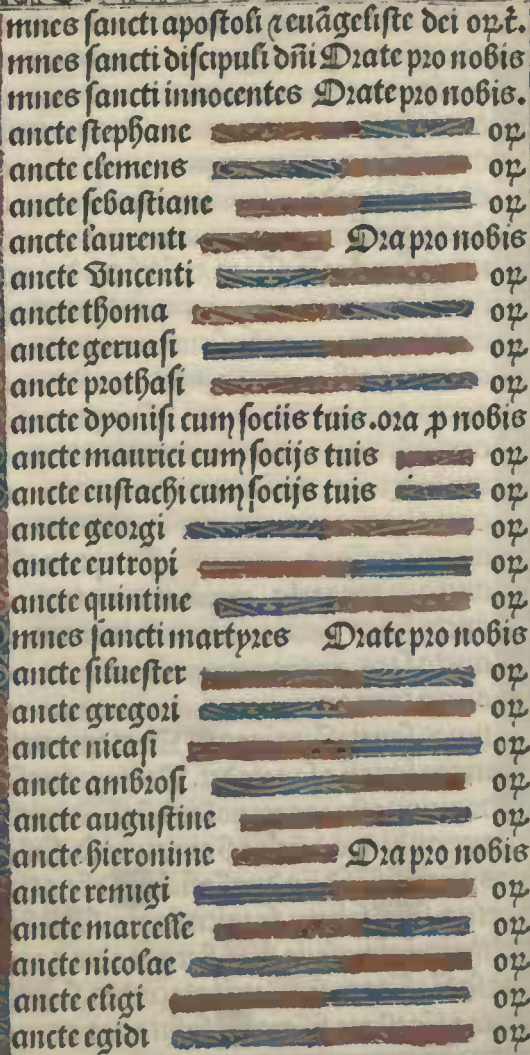 mnes sancti apostoli ⁊ euãgeliste dei oꝛ.t̃.
mnes sancti discipuli dñi Orate pro nobis
mnes sancti innocentes Orate pro nobis.
ancte stephane oꝛ
ancte clemens oꝛ
ancte sebastiane oꝛ
ancte laurenti Ora pro nobis
ancte Vincenti oꝛ
ancte thoma oꝛ
ancte geruasi oꝛ
ancte prothasi oꝛ
ancte dyonisi cum sociis tuis.ora ꝓ nobis
ancte maurici cum socijs tuis oꝛ
ancte eustachi cum socijs tuis oꝛ
ancte georgi oꝛ
ancte eutropi oꝛ
ancte quintine oꝛ
mnes sancti martyres Orate pro nobis
ancte siluester oꝛ
ancte gregori oꝛ
ancte nicasi oꝛ
ancte ambrosi oꝛ
ancte augustine oꝛ
ancte hieronime Ora pro nobis
ancte remigi oꝛ
ancte marcelle oꝛ
ancte nicolae oꝛ
ancte eligi oꝛ
ancte egidi oꝛ